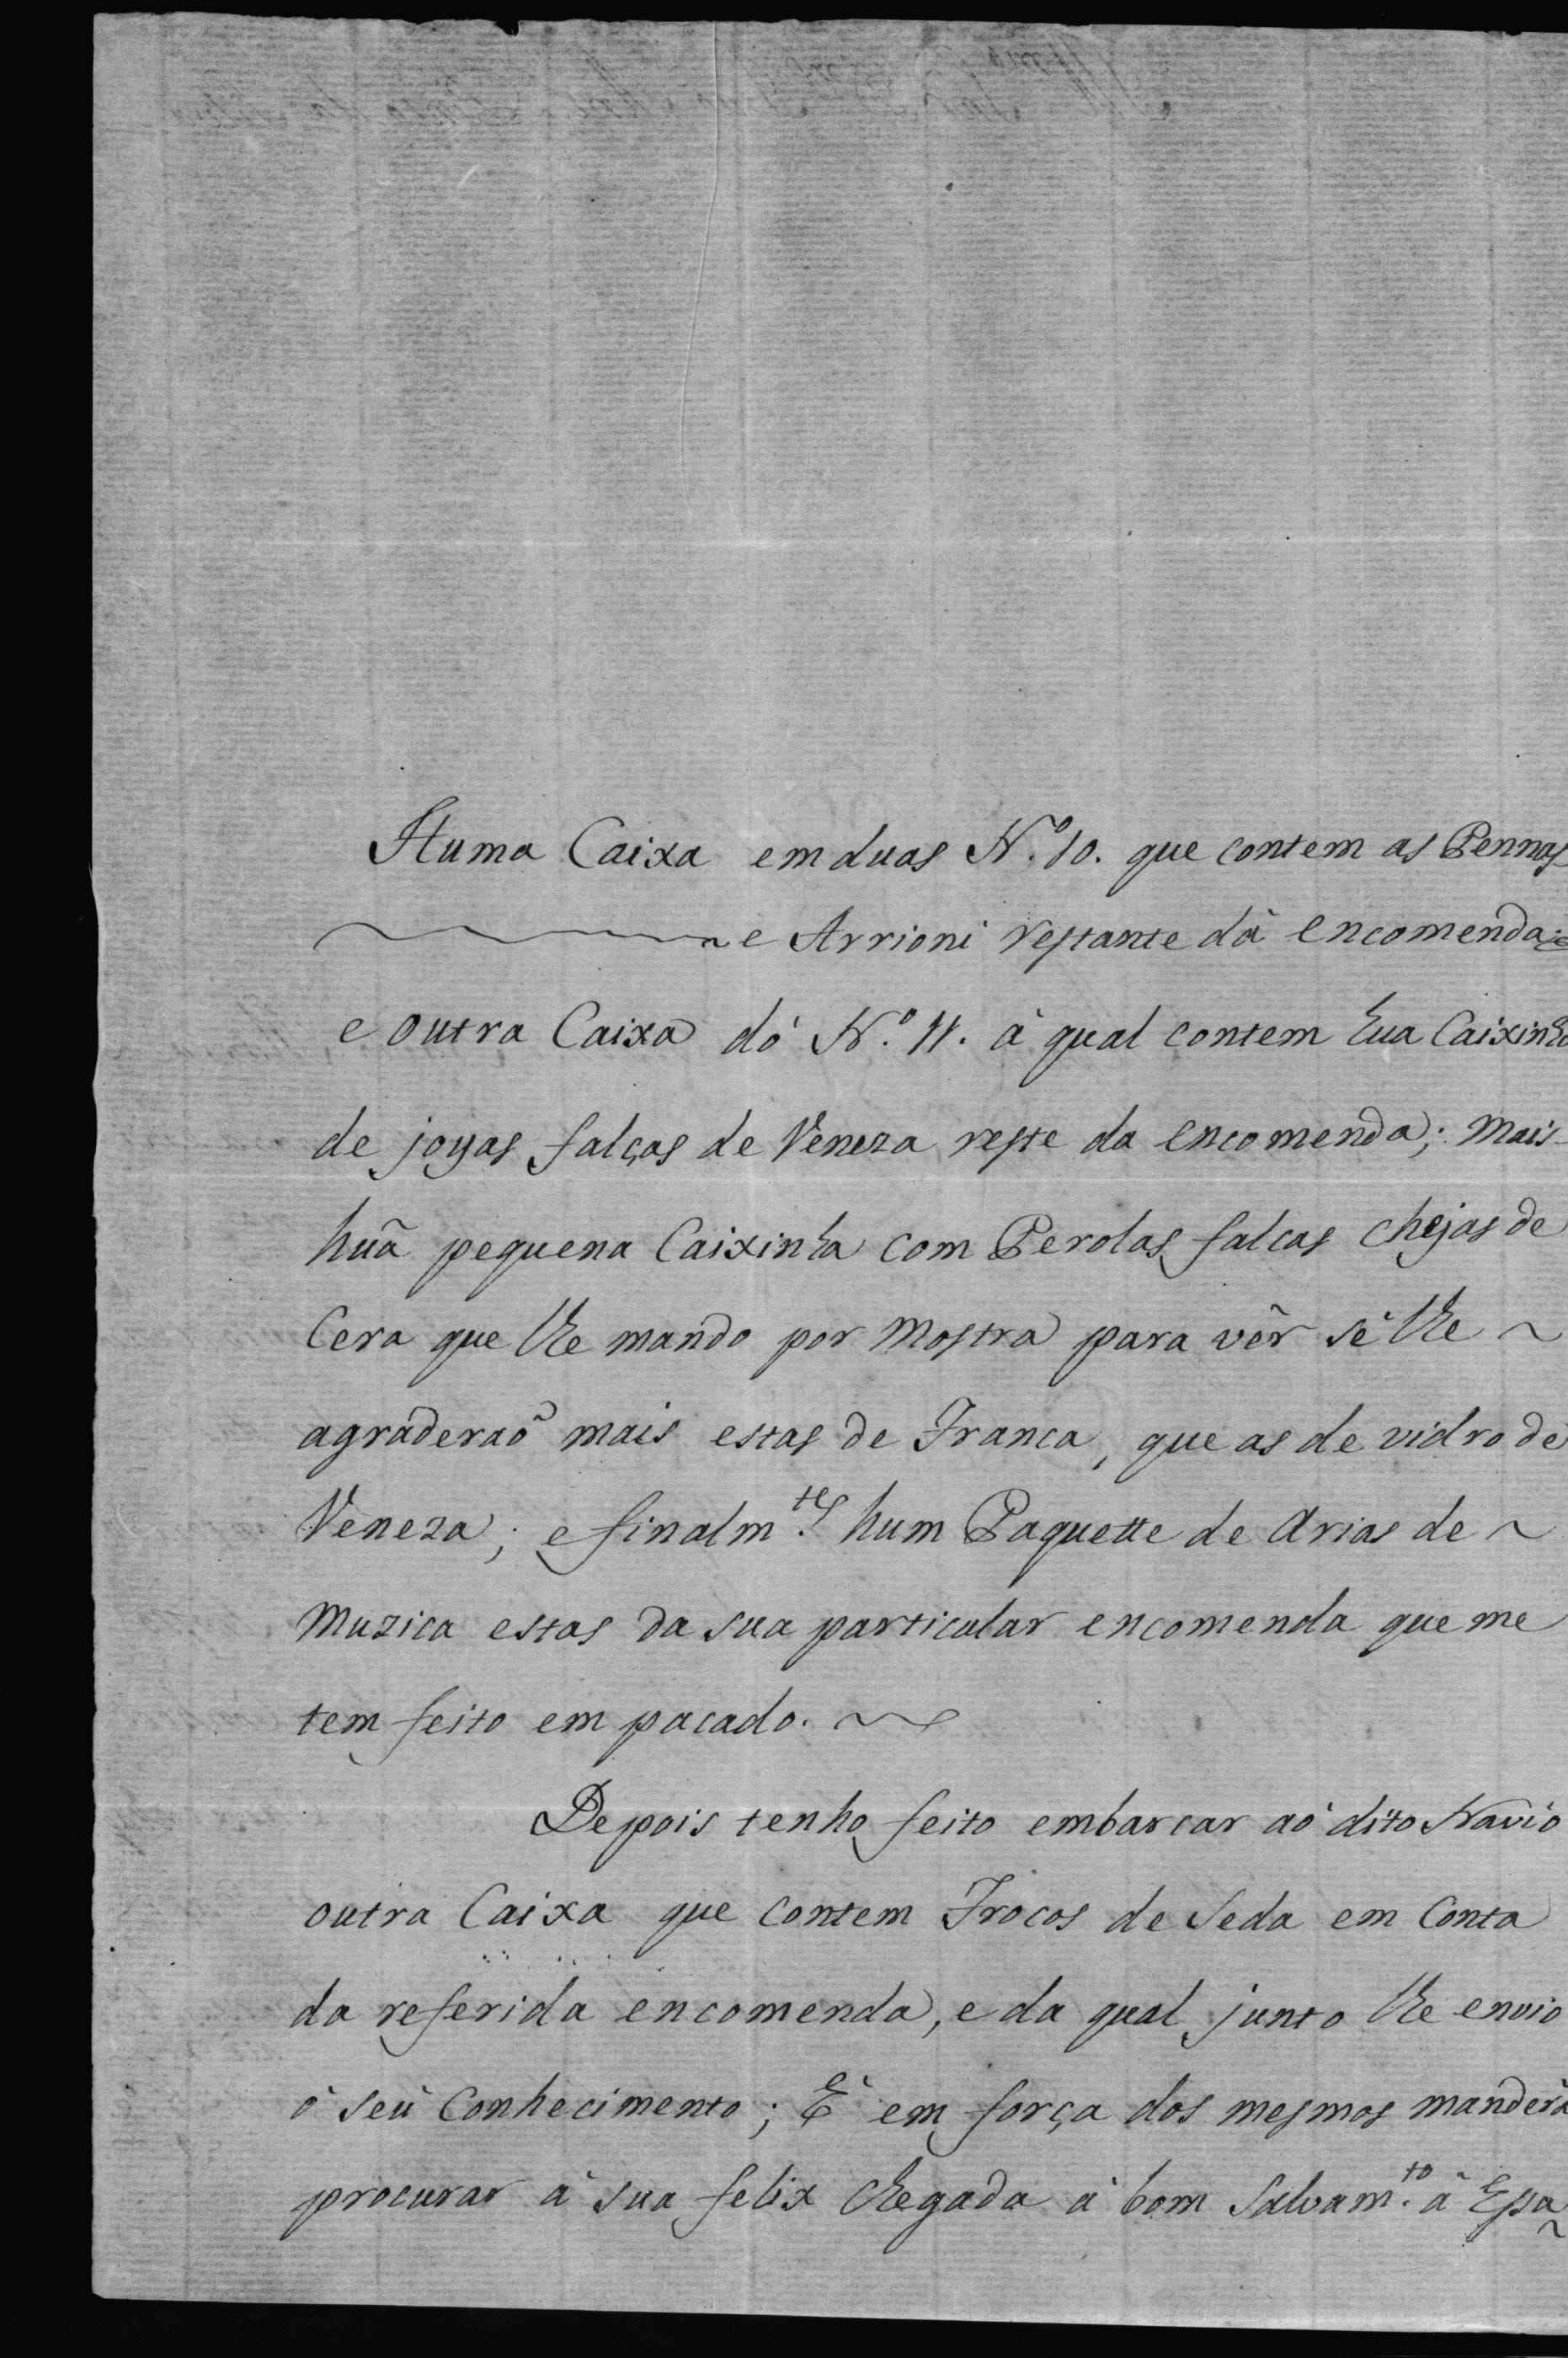 Huma Caixa em duas N.º 10. que contem as Pennas
e Arrioni restante dà encomenda:
e outra Caixa dó N.º 11. à qual contem hua Caixinha
de joyas falças de Veneza reste da encomenda; mais
huã pequena Caixinha com Perolas falcas chejas de
Cera que lhe mando por mostra para vêr sê lhe ~
agraderaõ mais estas de Franca, que as de vidro de
Veneza; e finalm.tes hum Paquette de Arias de ~
Muzica estas da sua particular encomenda que me
tem feito em pacado. ~
Depois tenho feito embarcar aó dito Navio
outra Caixa que contem Frocos de Seda em Conta
da referida encomenda, e da qual junto lhe envio
ó seù Conhecimento; È em força dos mesmos manderà
procurar à sua felix chegada à bom Salvam.to à Essa